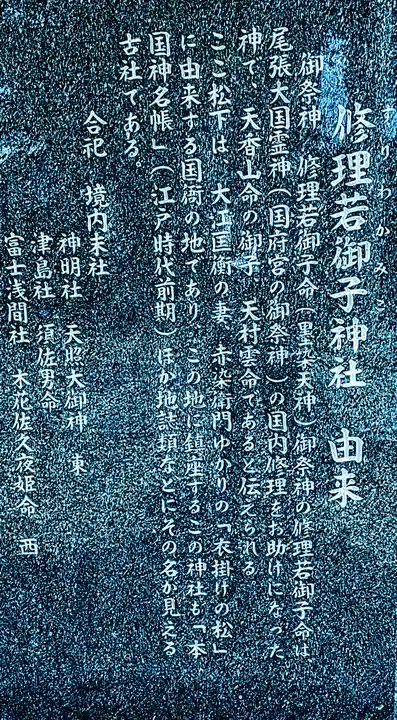 すりわかみこ
修理若御子神社 由来
御祭神 修理若御子命(墨染天神)御祭神の修理若御子命は
尾張大国霊神(国府宮の御祭神)の国内修理をお助けになった
神で、天香山命の御子 天村雲命であると伝えられる
ここ松下は、大江匡衡の妻 赤染衛門ゆかりの「衣掛けの松」
に由来する国衙の地であり、この地に鎮座するこの神社も「本
国神名帳」(江戸時代前期)ほか地誌類などにその名が見える
古社である。
合祀 境内末社
神明社 天照大御神 東
津島社 須佐男命
富士浅間社 木花佐久夜姫命 西